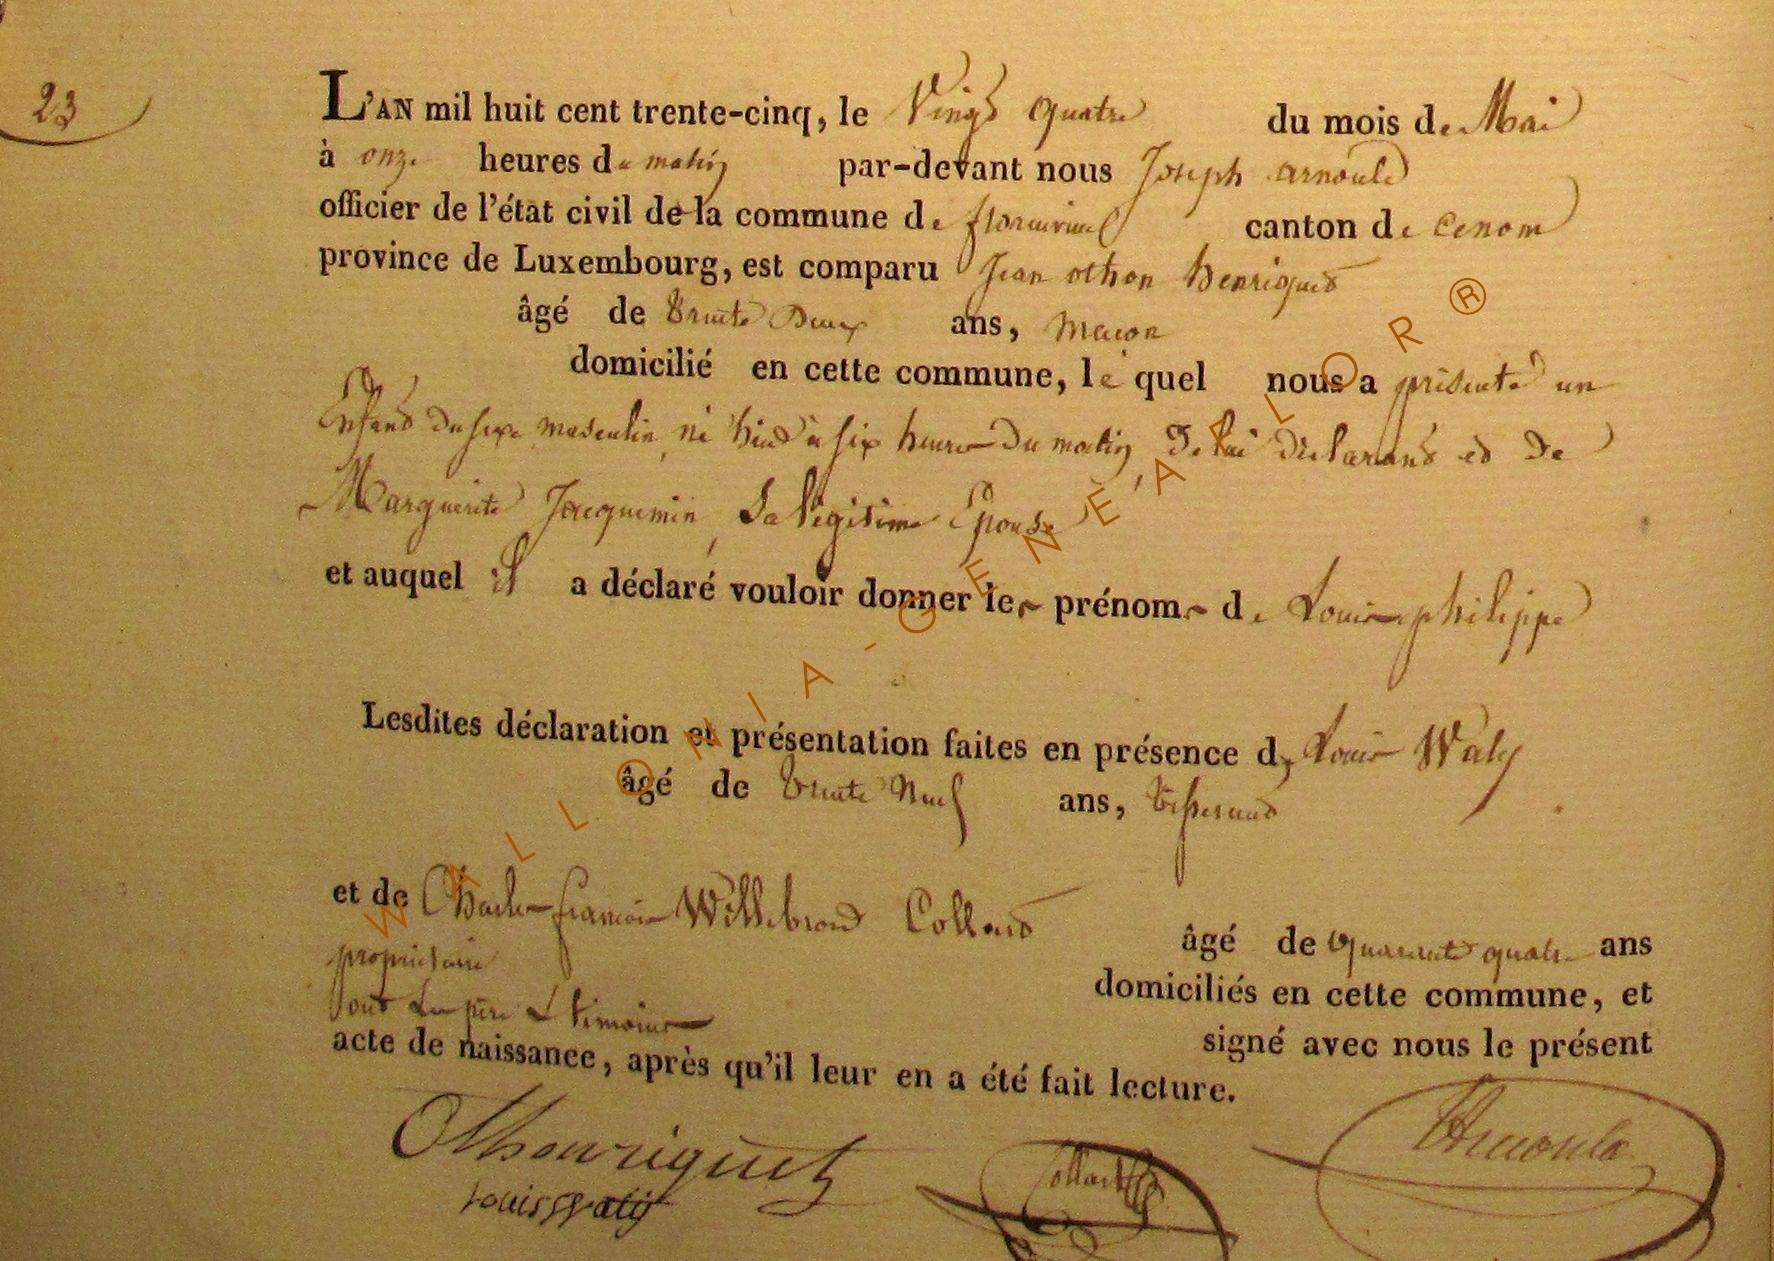 23
L'AN mil huit cent trente-cinq, le Vingt quatre du mois de Mai
à onze heures du matin par-devant nous Joseph arnould
officier de l'état civil de la commune de florenville canton de
province de Luxembourg, est comparu Jean othon henriquet
âgé de trente Deux ans, macon
domicilié en cette commune, le quel nous a présenté un
Enfant du sexe masculin, né hier à six heures Du matin, De lui Déclarant et De
Marguerite Jacquemin, Sa légitime Epouse
et auquel il a déclaré vouloir donner les prénoms de Louis philippe
Lesdites déclaration et présentation faites en présence de Louis Waly
âgé de trente Neuf ans, tisserand
et de Charles françois Willebrord Collard
âgé de quarante quatre ans
propriétaire
domiciliés en cette commune, et
ont Les père & témoins
signé avec nous le présent
acte de naissance, après qu'il leur en a été fait lecture.
OThenriquet
Louis Waly
Collard
Arnould
WALLONIA-GENEALOR ®